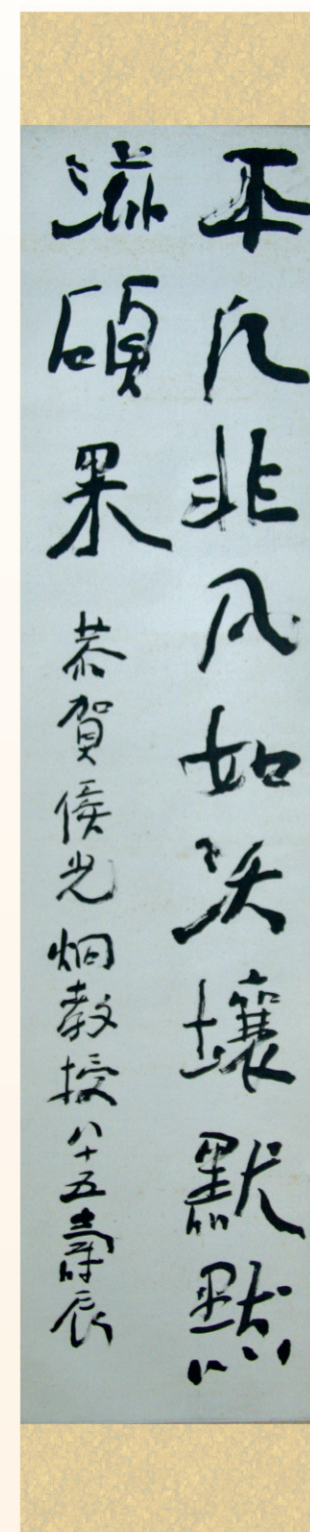 平凡非凡如沃壤默默
滋硕果 恭賀侯光炯教授八十五壽辰